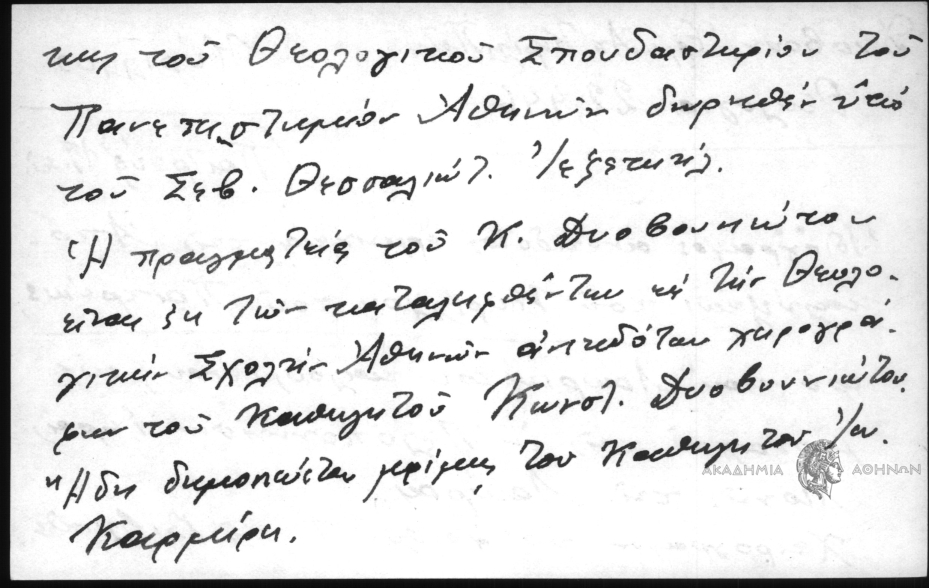 κης τοῦ Θεολογικοῦ Σπουδαστηρίου τοῦ
Πανεπιστημίου Ἀθηνῶν δωρηθὲν ὑπὸ
τοῦ Σεβ. Θεσσαλιώτ. Ἰεζεκιήλ.
Ἡ πραγματεία τοῦ Κ. Δυοβουνιώτου
εἶναι ἐκ τῶν καταλειφθέντων εἰς τὴν Θεολο-
γικὴν Σχολὴν Ἀθηνῶν ἀνεκδότων χειρογρά-
φων τοῦ Καθηγητοῦ Κωνστ. Δυοβουνιώτου.
Ἤδη δημοσιεύεται μερίμνῃ τοῦ Καθηγητοῦ Ἰω.
Καρμίρη.
ΑΚΑΔΗΜΙΑ ΑΘΗΝΩΝ